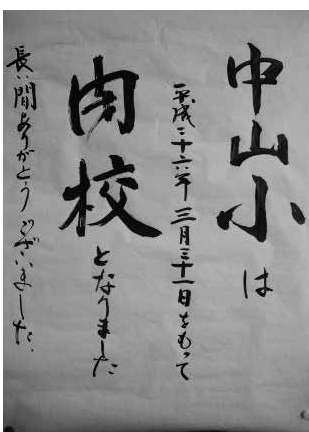 中山小は
平成二十六年三月三十一日をもって
閉校となりました
長い間ありがとうございました。